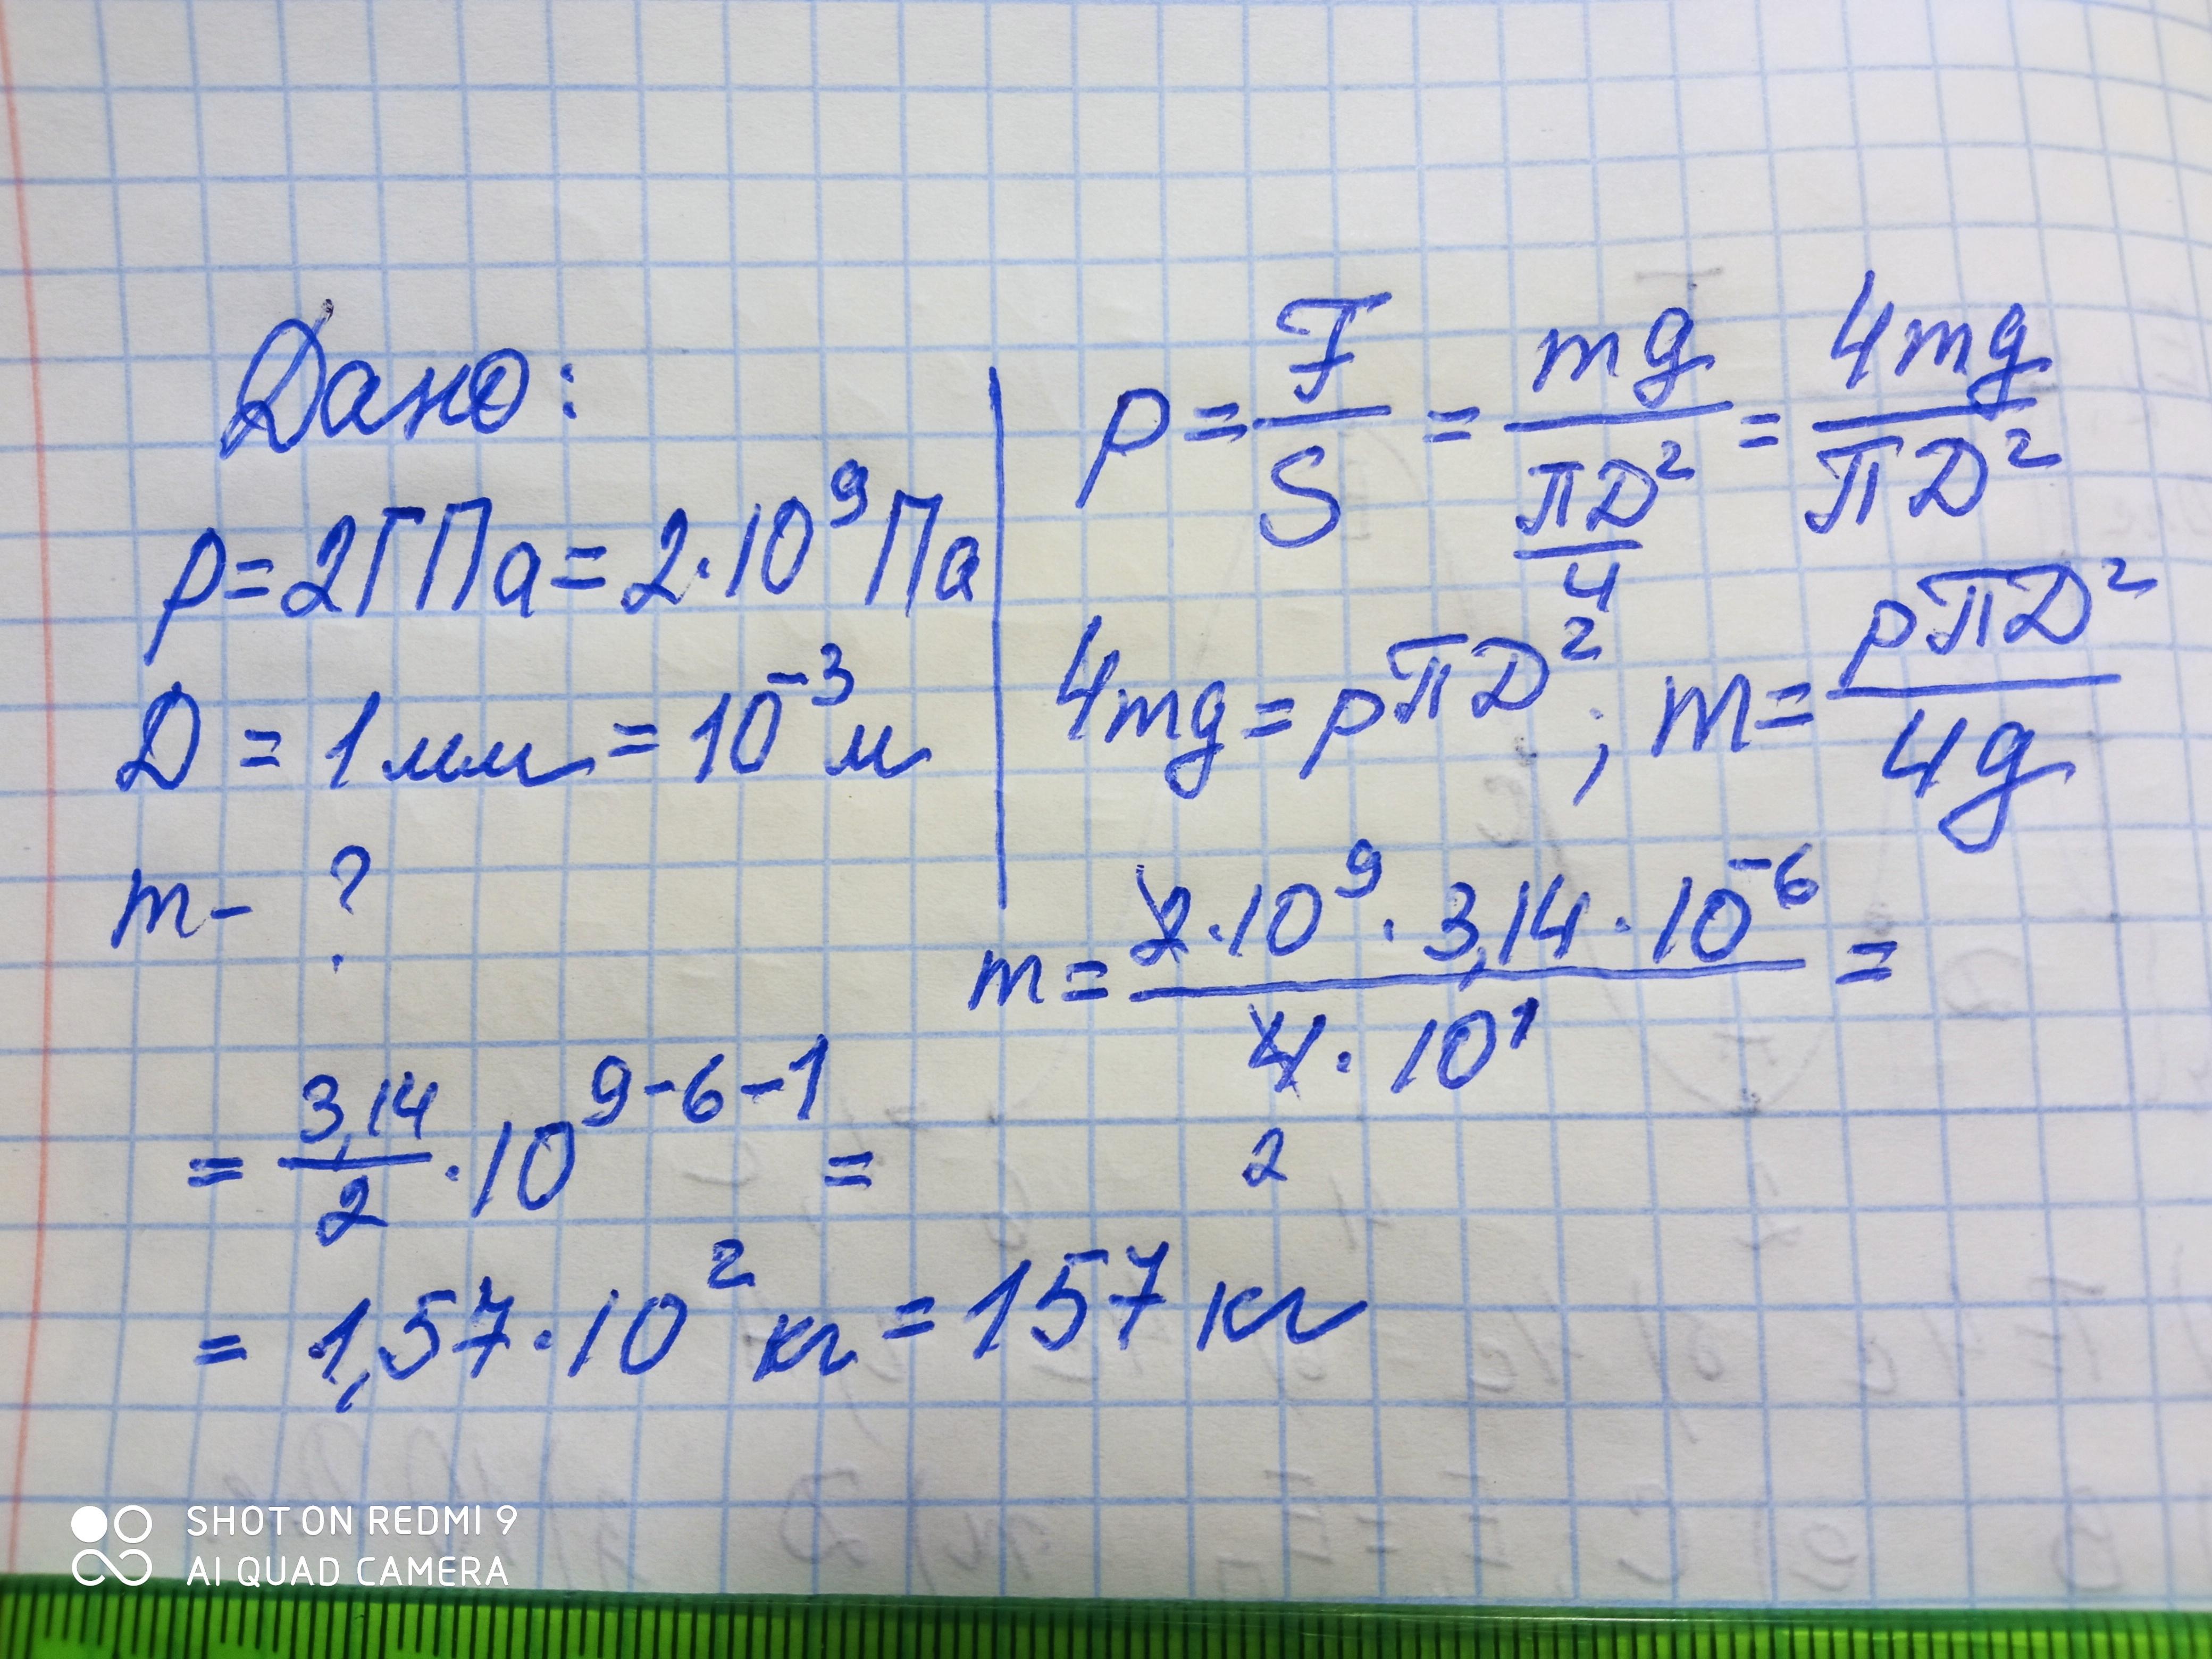 Дано:
p=2ГПа=2·10⁹Па
D = 1мм=10⁻³м
m- ?
p=F/S=mg/(πD²/4)=4mg/(πD²)
4mg=pπD²; m=pπD²/4g
m=2·10⁹·3,14·10⁻⁶/4·10¹=
2
=3,14/2·10⁹⁻⁶⁻¹=
=1,57·10²кг=157кг
SHOT ON REDMI 9
AI QUAD CAMERA